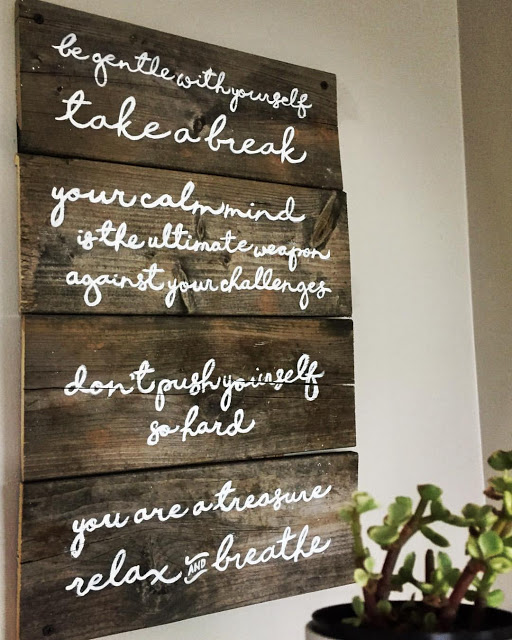 be gentle with yourself
take a break
your calm mind
is the ultimate weapon
against your challenges
don't push yourself
so hard
you are a treasure
relax AND breathe